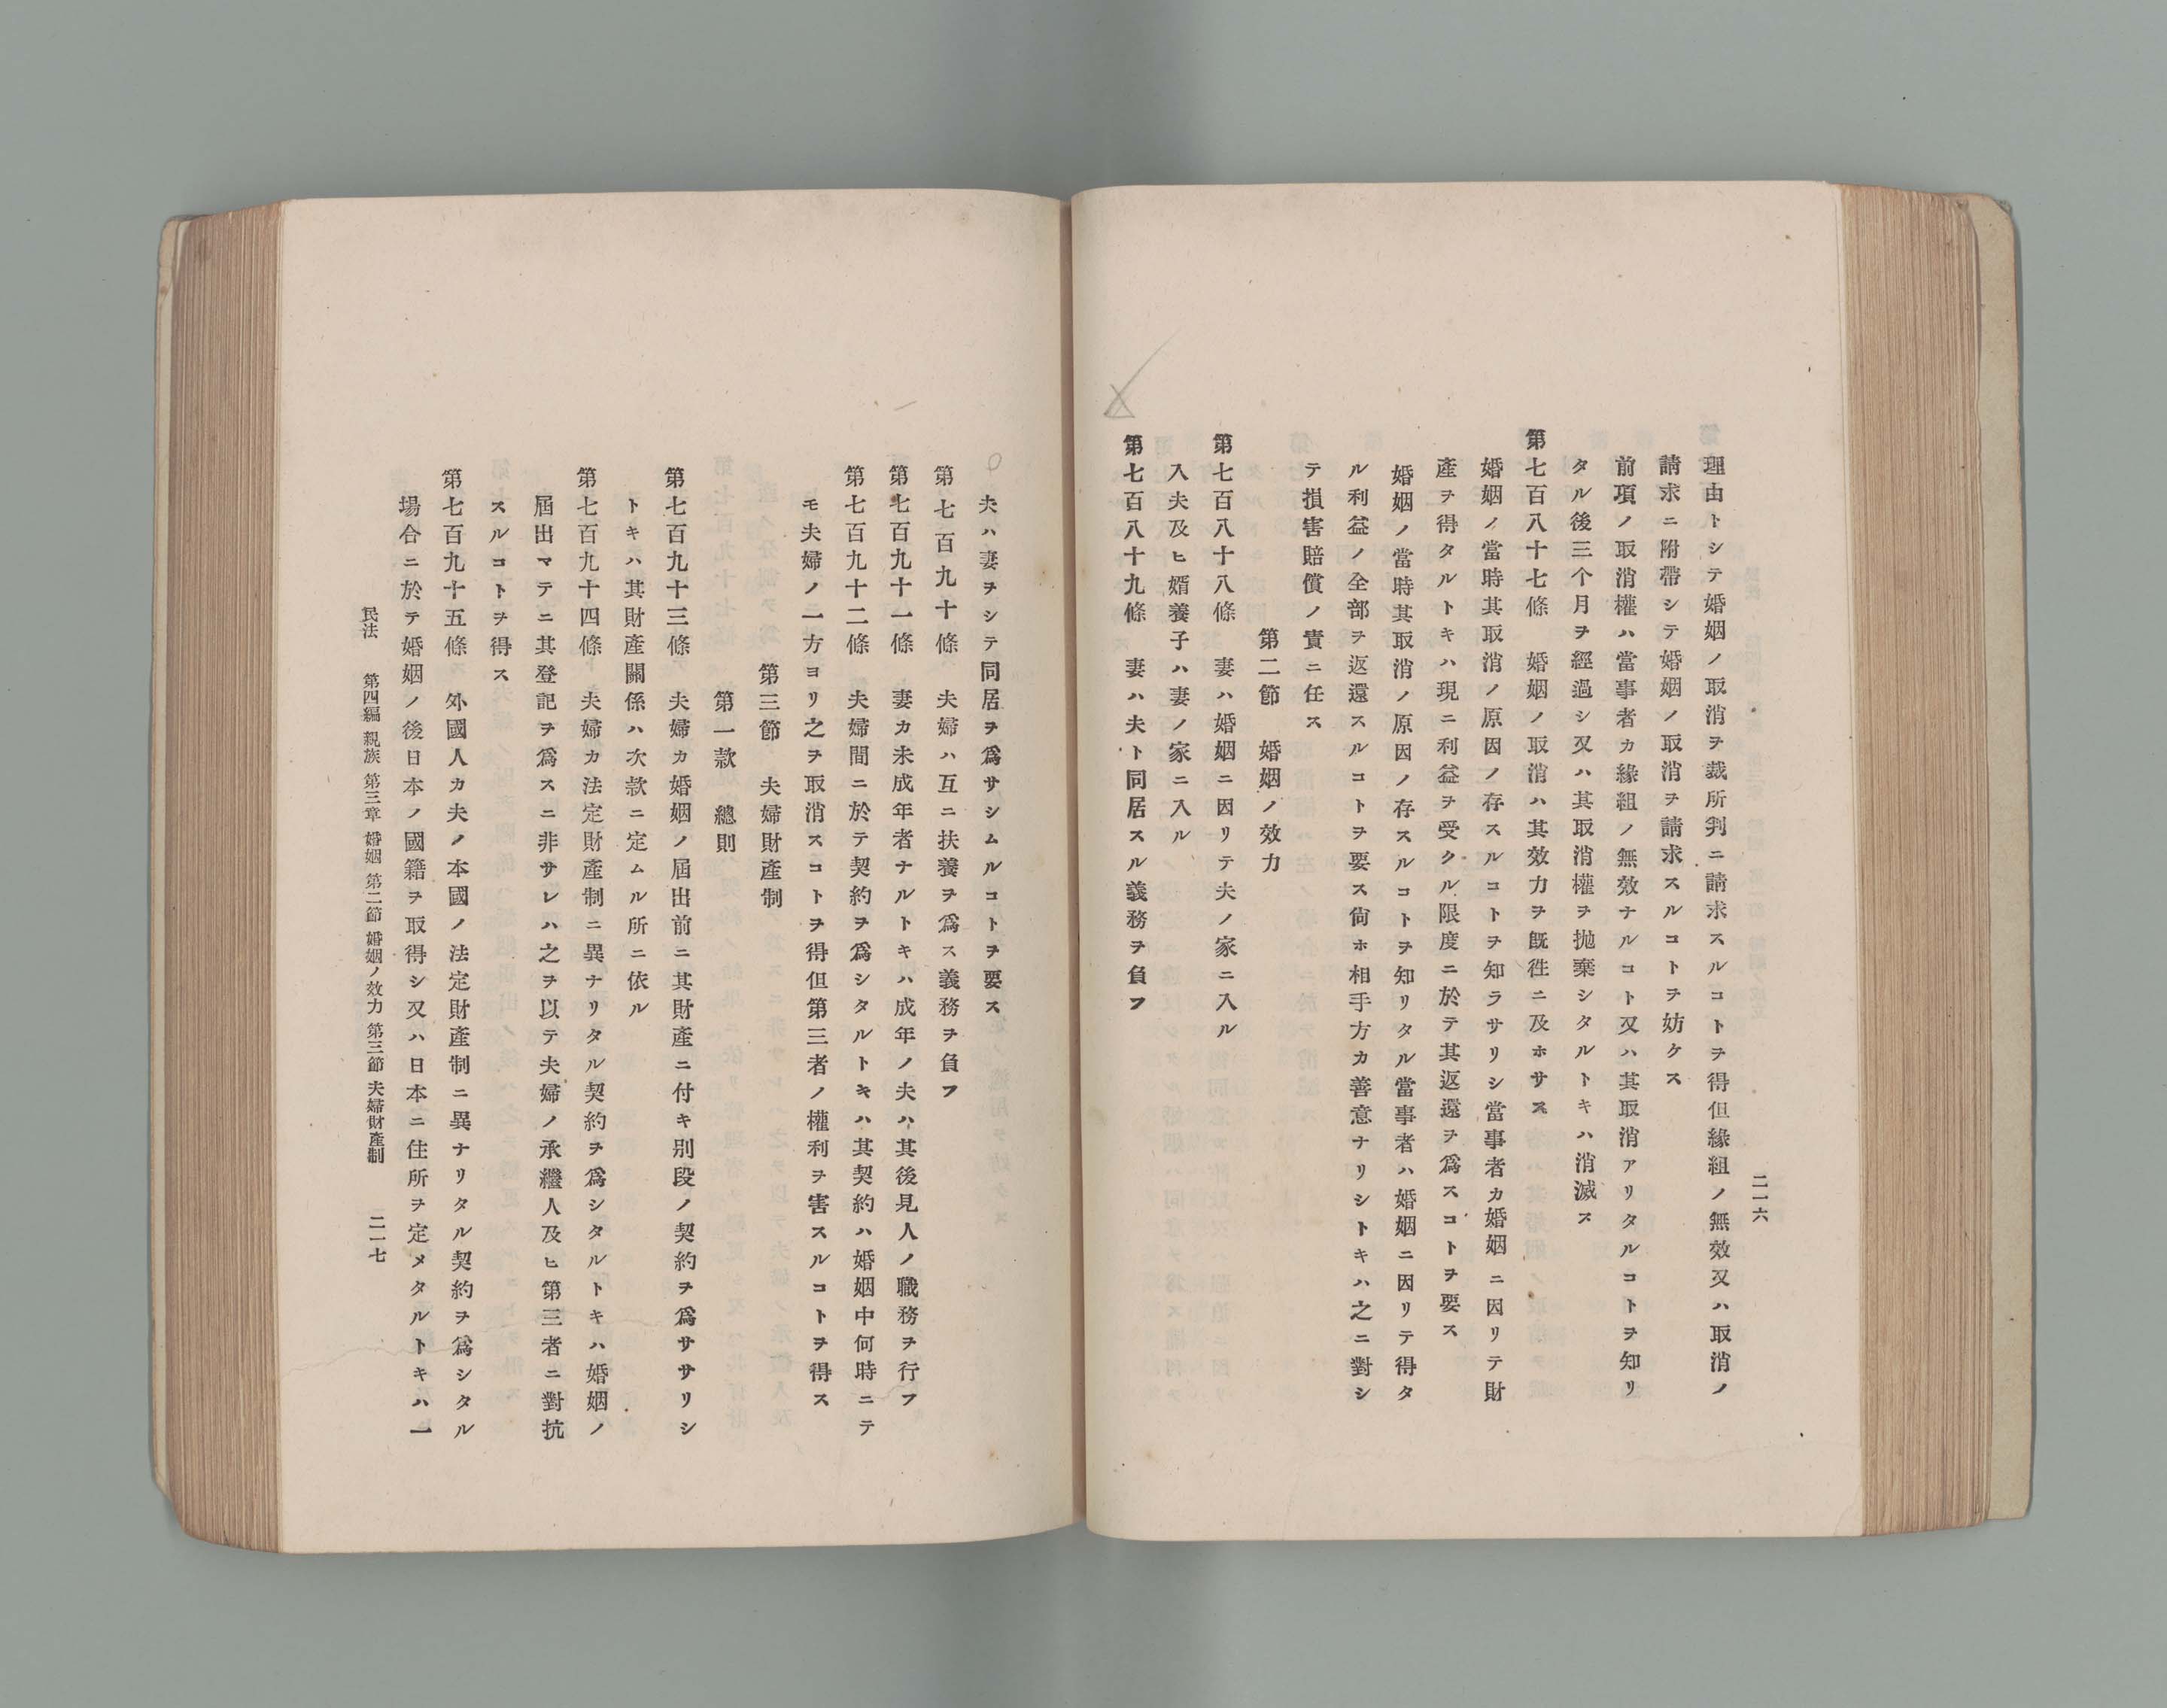 二一六
理由トシテ婚姻ノ取消ヲ裁所判ニ請求スルコトヲ得但緣組ノ無效又ハ取消ノ
請求ニ附帶シテ婚姻ノ取消ヲ請求スルコトヲ妨ケス
前項ノ取消權ハ當事者カ緣組ノ無效ナルコト又ハ其取消アリタルコトヲ知リ
タル後三个月ヲ經過シ又ハ其取消權ヲ抛棄シタルトキハ消滅ス
第七百八十七條　婚姻ノ取消ハ其效力ヲ既往ニ及ホサス
婚姻ノ當時其取消ノ原因ノ存スルコトヲ知ラサリシ當事者カ婚姻ニ因リテ財
產ヲ得タルトキハ現ニ利益ヲ受クル限度ニ於テ其返還ヲ爲スコトヲ要ス
婚姻ノ當時其取消ノ原因ノ存スルコトヲ知リタル當事者ハ婚姻ニ因リテ得タ
ル利益ノ全部ヲ返還スルコトヲ要ス尙ホ相手方カ善意ナリシトキハ之ニ對シ
テ損害賠償ノ責ニ任ス
第二節　婚姻ノ效力
第七百八十八條　妻ハ婚姻ニ因リテ夫ノ家ニ入ル
入夫及ヒ婿養子ハ妻ノ家ニ入ル
第七百八十九條　妻ハ夫ト同居スル義務ヲ負フ
夫ハ妻ヲシテ同居ヲ爲サシムルコトヲ要ス
第七百九十條　夫婦ハ互ニ扶養ヲ爲ス義務ヲ負フ
第七百九十一條　妻カ未成年者ナルトキハ成年ノ夫ハ其後見人ノ職務ヲ行フ
第七百九十二條　夫婦間ニ於テ契約ヲ爲シタルトキハ其契約ハ婚姻中何時ニテ
モ夫婦ノ一方ヨリ之ヲ取消スコトヲ得但第三者ノ權利ヲ害スルコトヲ得ス
第三節　夫婦財產制
第一款　總則
第七百九十三條　夫婦カ婚姻ノ屆出前ニ其財產ニ付キ別段ノ契約ヲ爲ササリシ
トキハ其財產關係ハ次款ニ定ムル所ニ依ル
第七百九十四條　夫婦カ法定財產制ニ異ナリタル契約ヲ爲シタルトキハ婚姻ノ
屆出マテニ其登記ヲ爲スニ非サレハ之ヲ以テ夫婦ノ承繼人及ヒ第三者ニ對抗
スルコトヲ得ス
第七百九十五條　外國人カ夫ノ本國ノ法定財產制ニ異ナリタル契約ヲ爲シタル
場合ニ於テ婚姻ノ後日本ノ國籍ヲ取得シ又ハ日本ニ住所ヲ定メタルトキハ一
民法　第四編 親族 第三章 婚姻 第二節 婚姻ノ效力 第三節 夫婦財產制　二一七